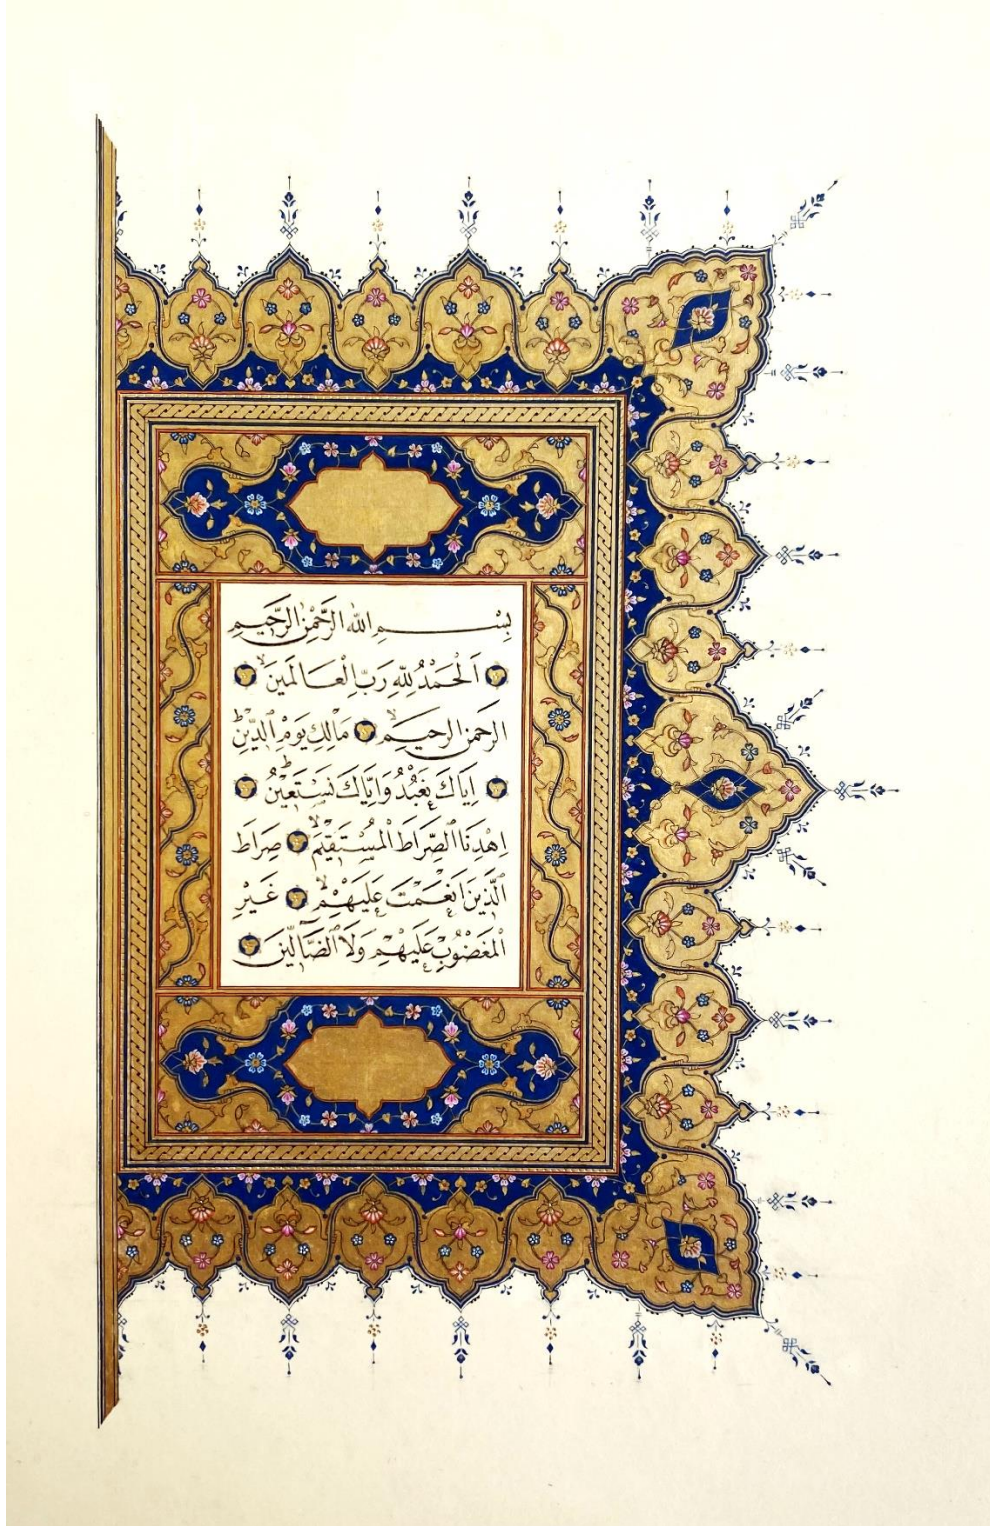 بِسْمِ اللهِ الرَّحْمٰنِ الرَّحٖيمِ
اَلْحَمْدُ لِلّٰهِ رَبِّ الْعَالَمٖينَۙ
الرَّحْمٰنِ الرَّحٖيمِۙ مَالِكِ يَوْمِ الدّٖينِؕ
اِيَّاكَ نَعْبُدُ وَاِيَّاكَ نَسْتَعٖينُؕ
اِهْدِنَا الصِّرَاطَ الْمُسْتَقٖيمَۙ صِرَاطَ
الَّذٖينَ اَنْعَمْتَ عَلَيْهِمْۙ غَيْرِ
الْمَغْضُوبِ عَلَيْهِمْ وَلَا الضَّٓالّٖينَ